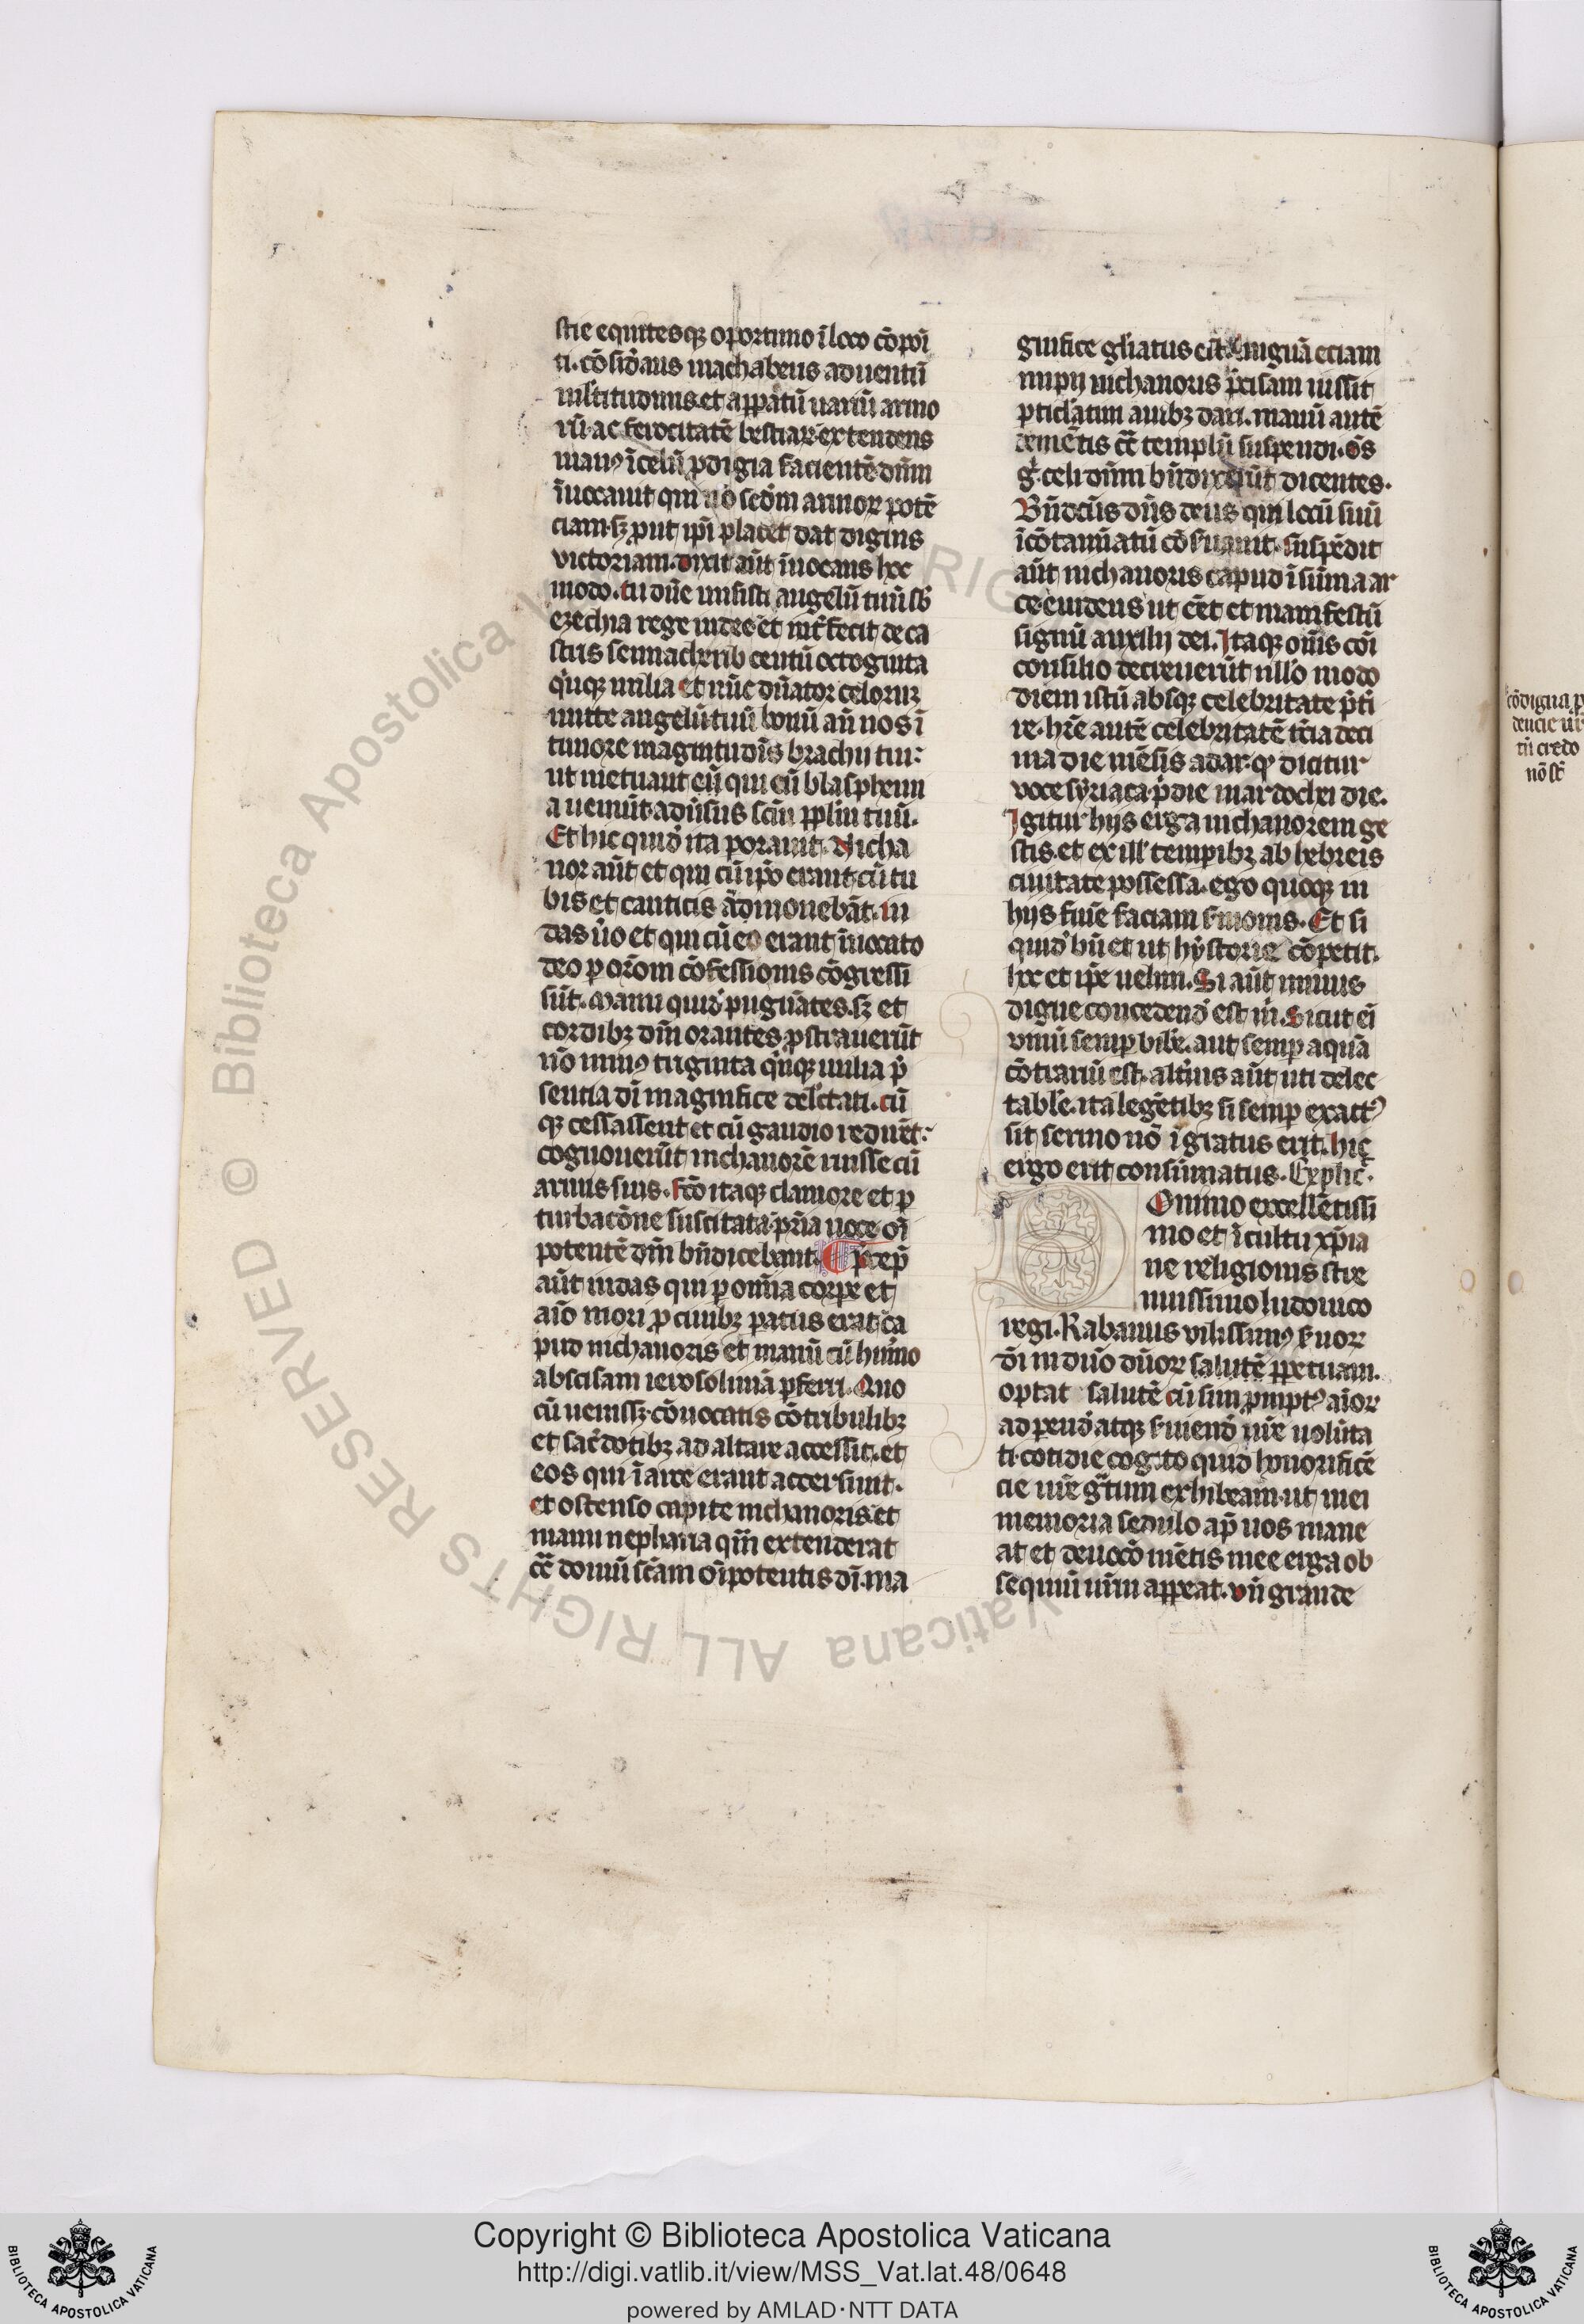 stie equitesq; oportuno i loco cōpoi
ti. cōsid'ans machabeus aduentū
m'ltitudinis. et appatū uariū armo
rū. ac ferocitatē bestiar. extendens
man9 i celū pdigia facientē dn̄m
īuocauit qui nō scd'm armor potē
ciam. sz put ipi placet dat dignis
victoriam. dixit aūt īuocans hoc
modo. tu dn̄e misisti angelū tuū sb'
ezechia rege iudee. et int'fecit de ca
stris sennacherib centū octoginta
q̄nq; milia et nūc dn̄ator celorum
mitte angelū tuū bonū an̄ nos ī
timore magnitudīs brachij tui.
ut metuant eū qui cū blasphemi
a ueniūt. adu'sus sc̄m pplm tuū.
Et hic quid' ita porauit. Nicha
nor aūt et qui cū ip̄o erant cū tu
bis et canticis ādmouebāt. iu
das uo et qui cū eo erant īuocato
deo p or̄om cōfessionis cōgressi
sūt. Manu quid' pugnātes. sz et
cordibz dn̄m orantes. pstrauerūt
nō min9 triginta q̄nq; milia p̄
sentia di magnifice del'ctati. cū
q; cessassent et cū gaudio redirēt.
cognouerūt nichanorē ruisse cū
armis suis. fc̄o itaq; clamore et p
turbacōne suscitata. pr̄ia uoce oī
potentē dn̄m bn̄dicebant. p̄cep̄
aūt iudas qui p omn̄ia corpe et
aīo mori p ciuibz patus erat ca
pud nichanoris et manū cū hum'o
abscisam ierosolimā pferri. Quo
cū uenissz. cōuocatis cōtribulibz
et sac'dotibz ad altare accessit. et
eos qui ī arce erant accersiuit.
et ostenso capite nichanoris. et
manu nepharia qm̄ extenderat
cc̄ domū sc̄am oīpotentis dī. ma
gnifice gl'iatus est. linguā eciam
impij nichanoris p̄cisam iussit
pticl'atim auibz dari. manū autē
demētis cc̄ templū suspendi. ōs
g'. celi dn̄m bn̄dixerūt dicentes.
Bn̄dc̄us dn̄s deus qui locū suū
īcōtaīatū cōs'uauit. suspēdit
aūt nichanoris capud ī sūma ar
ce. euidens ut cc̄t et manifestū
signū auxilij dei. Itaq; om̄s cōi
consilio decreuerūt null'o modo
diem istū absq; celebritate p̄t'i
re. hr̄e autē celebritatē t'cia deci
ma die mēsis adar. q9 dicitur
voce syriaca. p̄die mardochei die.
Igitur hijs erga nichanorem ge
stis. et ex ill' tempibz ab hebreis
ciuitate possessa. ego quoq; in
hijs finē faciam s'monis. Et si
quid' bn̄ et ut hystorie cōpetit.
hoc et ipe uelim. Si aūt minus
digne concedend' est m'. Sicut eī
vinū semp bib'e. aut semp aquā
cōtrariū est. alt'nis aūt uti delec
tabl'e. ita legētibz si semp exact9
sit sermo nō īgratus erit. hic
ergo erit consūmatus. Explic'.
Domino excellētissi
mo et ī cultu xp̄ia
ne religionis stre
nuissimo ludouico
regi. Rabanus vilissim9 s'uor
dī in dn̄o dn̄or salutē ppetuam.
optat salutē cū sim pmpt9 aīor
ad pend' atq; s'uiend' ure uolūta
ti. cotidie cogito quid honorificē
cie ure ḡtum exhibeam. ut mei
memoria sedulo ap̄ uos mane
at et deuocō mētis mee erga ob
sequiū urm appeat. vn̄ grande
cōdigna p
dencie ur̄
tū credo
nō sc̄
© Biblioteca Apostolica Vaticana ALL RIGHTS RESERVED
Copyright © Biblioteca Apostolica Vaticana
http://digi.vatlib.it/view/MSS_Vat.lat.48/0648
powered by AMLAD·NTT DATA
BIBLIOTECA APOSTOLICA VATICANA
BIBLIOTECA APOSTOLICA VATICANA